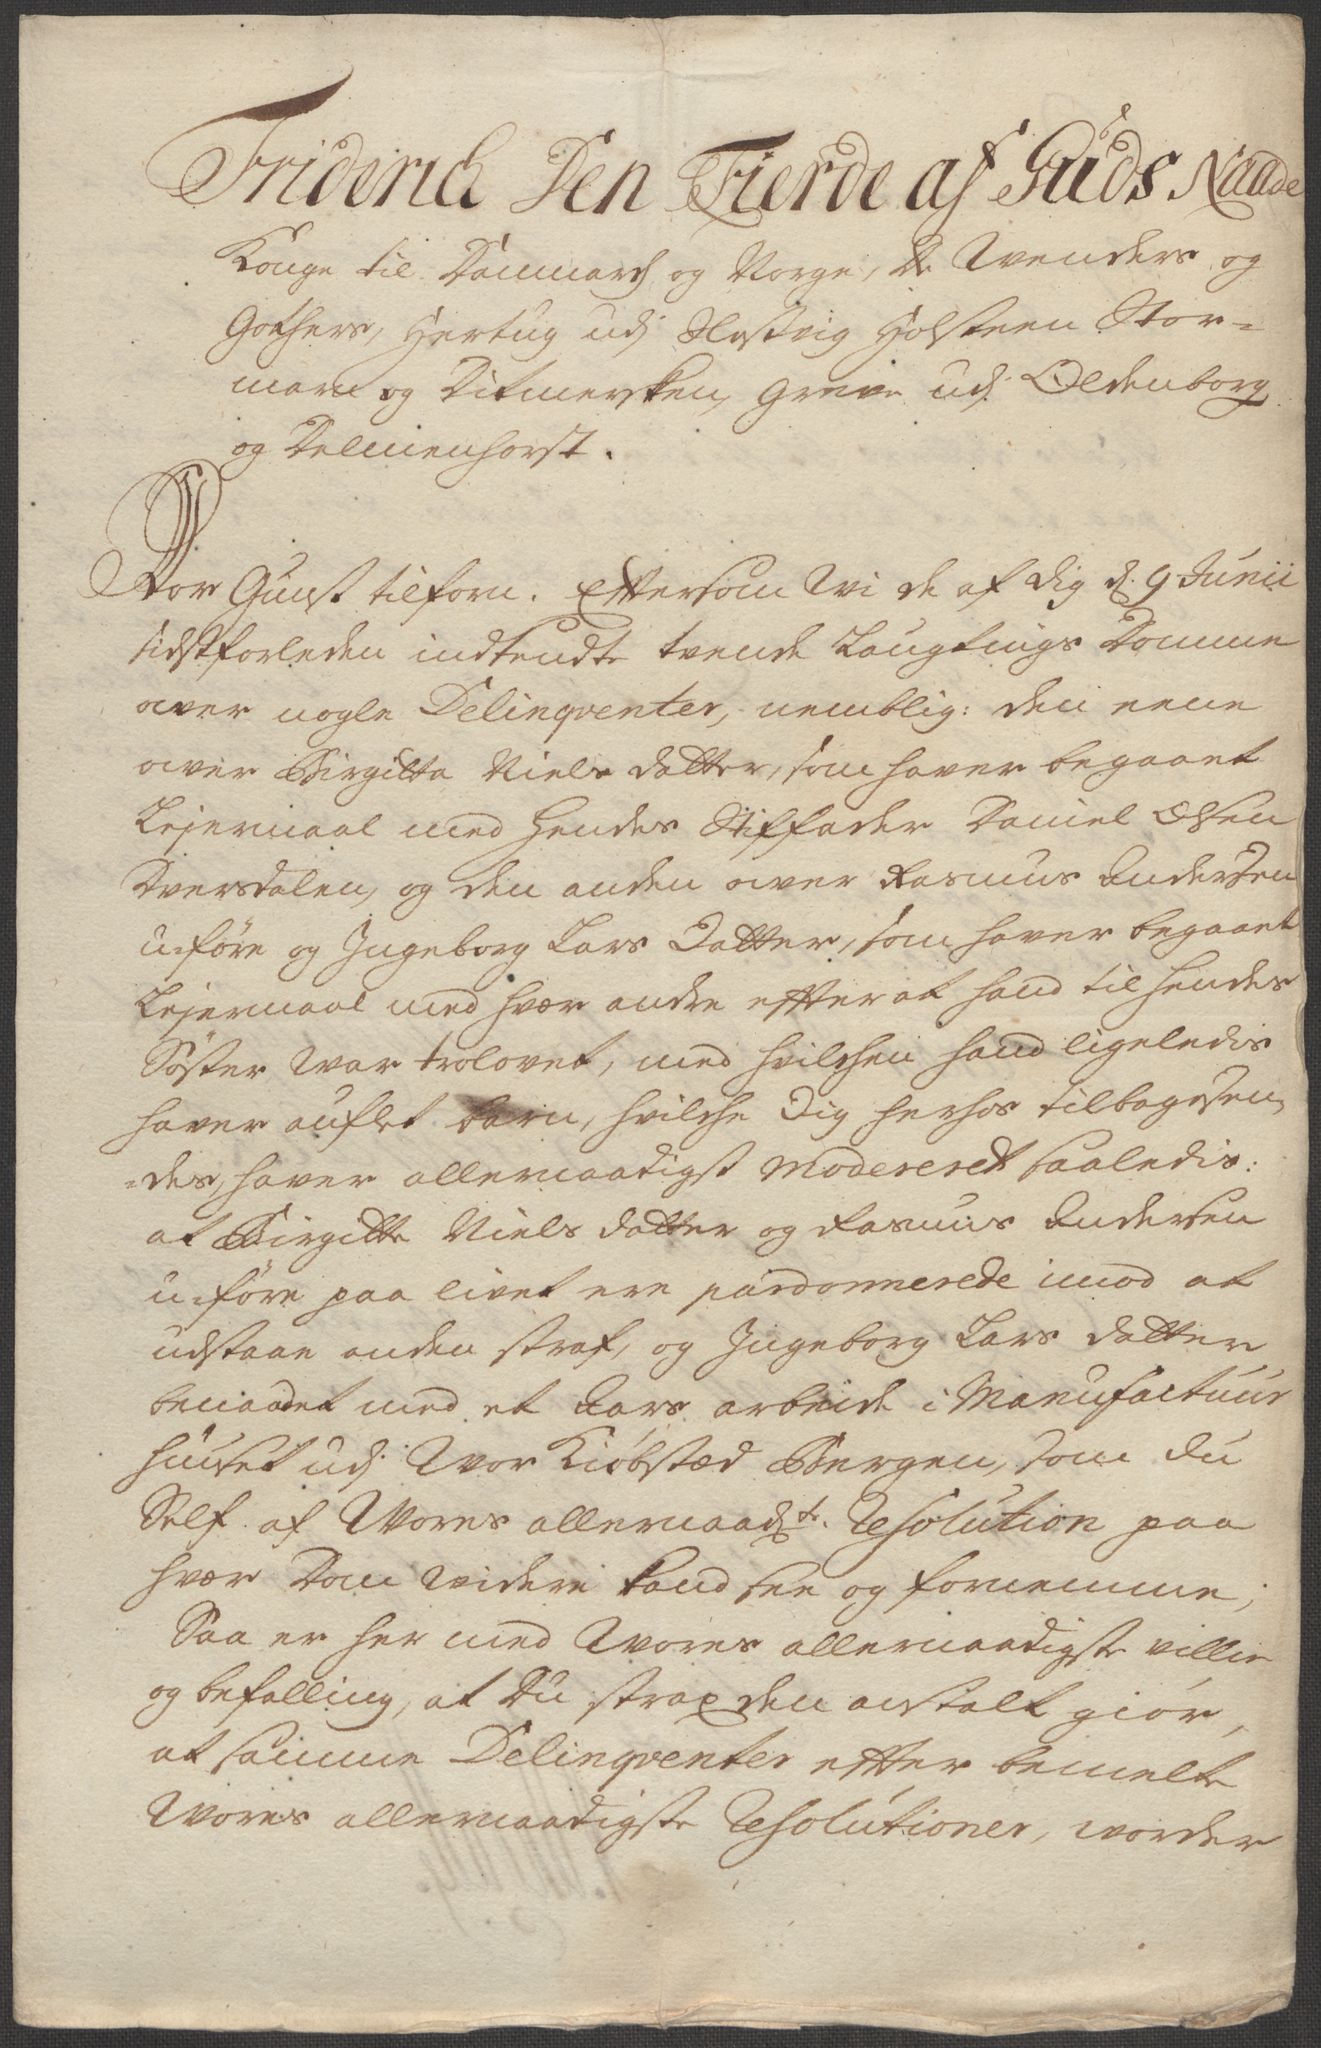 Friderich Den Fierde af Guds Naade
Konge til Danmarch og Norge, De Wenders og
Gothers, Hertug udj Slesvig Holsteen Stor-
marn og Ditmersken, Greve udj Oldenborg
og Delmenhorst.
Vor Gunst tilforn. Eftersom Wi de af dig d. 9 Junii
sidstforleden indsendte tvende Laugtings Domme
over nogle Delinqventer, nemblig: den eene
over Birgitta Niels datter, som haver begaaet
Lejermaal med hendes Stiffader Daniel Olsen
Dversdalen, og den anden over Rasmus Andersen
uføre og Ingeborg Lars Datter, som haver begaaet
Lejermaal med hver andre efter at hand til hendes
Søster war trolovet, med hvilchen hand ligeledis
haver auflet barn, hvilche dig herhos tilbagesen-
-des, haver allernaadigst modereret saaledis:
at Birgitte Niels datter og Rasmus Andersen
uføre paa livet ere pardonnerede imod at
udstaae anden straf, og Ingeborg Lars datter
benaadet med et Aars arbeide i Manufactuur
huuset udj Wor Kiøbstæd Bergen, som du
Self af Wores allernaadste. Resolution paa
hver Dom widere kand see og fornemme;
Saa er her med Wores allernaadigste villie
og befalling, at Du strax den anstalt giør,
at samme Delinqventer efter bemelte
Wores allernaadigste Resolutioner, worder